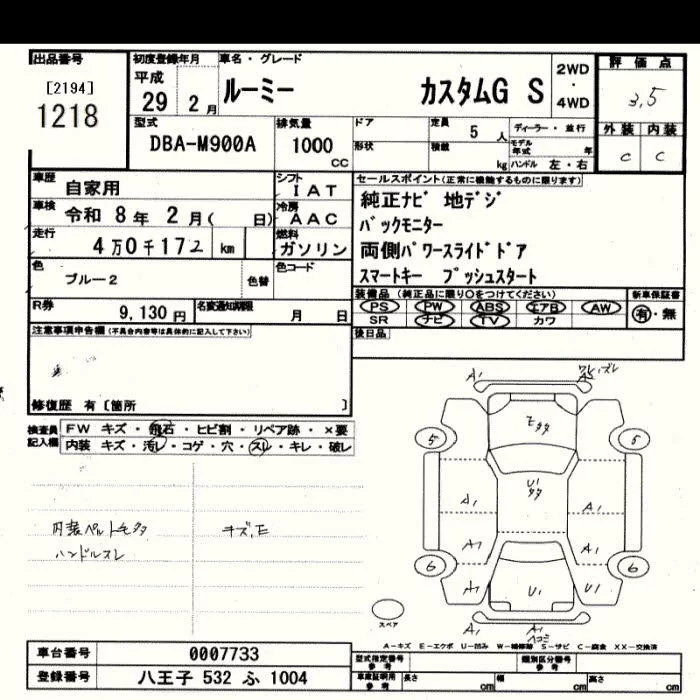 出品番号
[2194]
1218
初度登録年月
平成
29 2月
車名・グレード
ルーミー カスタムG S
2WD
・
4WD
評価点
3.5
外装 内装
C C
型式
DBA-M900A
排気量
1000
CC
ドア
形状
定員
5人
積載
kg
ディーラー・並行
モデル年式 年
ハンドル 左・右
車歴
自家用
シフト
IAT
車検
令和 8年 2月( 日)
冷房
AAC
走行
4万0千172 km
燃料
ガソリン
色
ブルー2
色替
色コード
セールスポイント(正常に機能するものに限ります)
純正ナビ 地デジ
バックモニター
両側パワースライドドア
スマートキー プッシュスタート
装備品(純正品に限り○をつけてください)
PS PW ABS エアB AW
SR ナビ TV カワ
新車保証書
有・無
後日品
R券
9,130円
名変通知期限
月 日
注意事項申告欄(不具合内容等は具体的に記入して下さい)
修復歴 有〔箇所 〕
検査員記入欄
FW キズ・飛石・ヒビ割・リペア跡・×要
内装 キズ・汚レ・コゲ・穴・スレ・キレ・破レ
内装ペルトモタタ キズ,E
ハンドルスレ
A1
ワレ,ズレ
A2
モタタ
5 5
U1
タタ
A1 A1
A1 A1
6 6
A1 U1 U1
A1 A1
ヘコミ
スペア
A-キズ E-エクボ U-凹み W-補修跡 S-サビ C-腐食 XX-交換済
車台番号
0007733
登録番号
八王子 532 ふ 1004
型式指定番号
参考
類別区分番号
参考
車庫証明用
参考
長さ cm
幅 cm
高さ cm